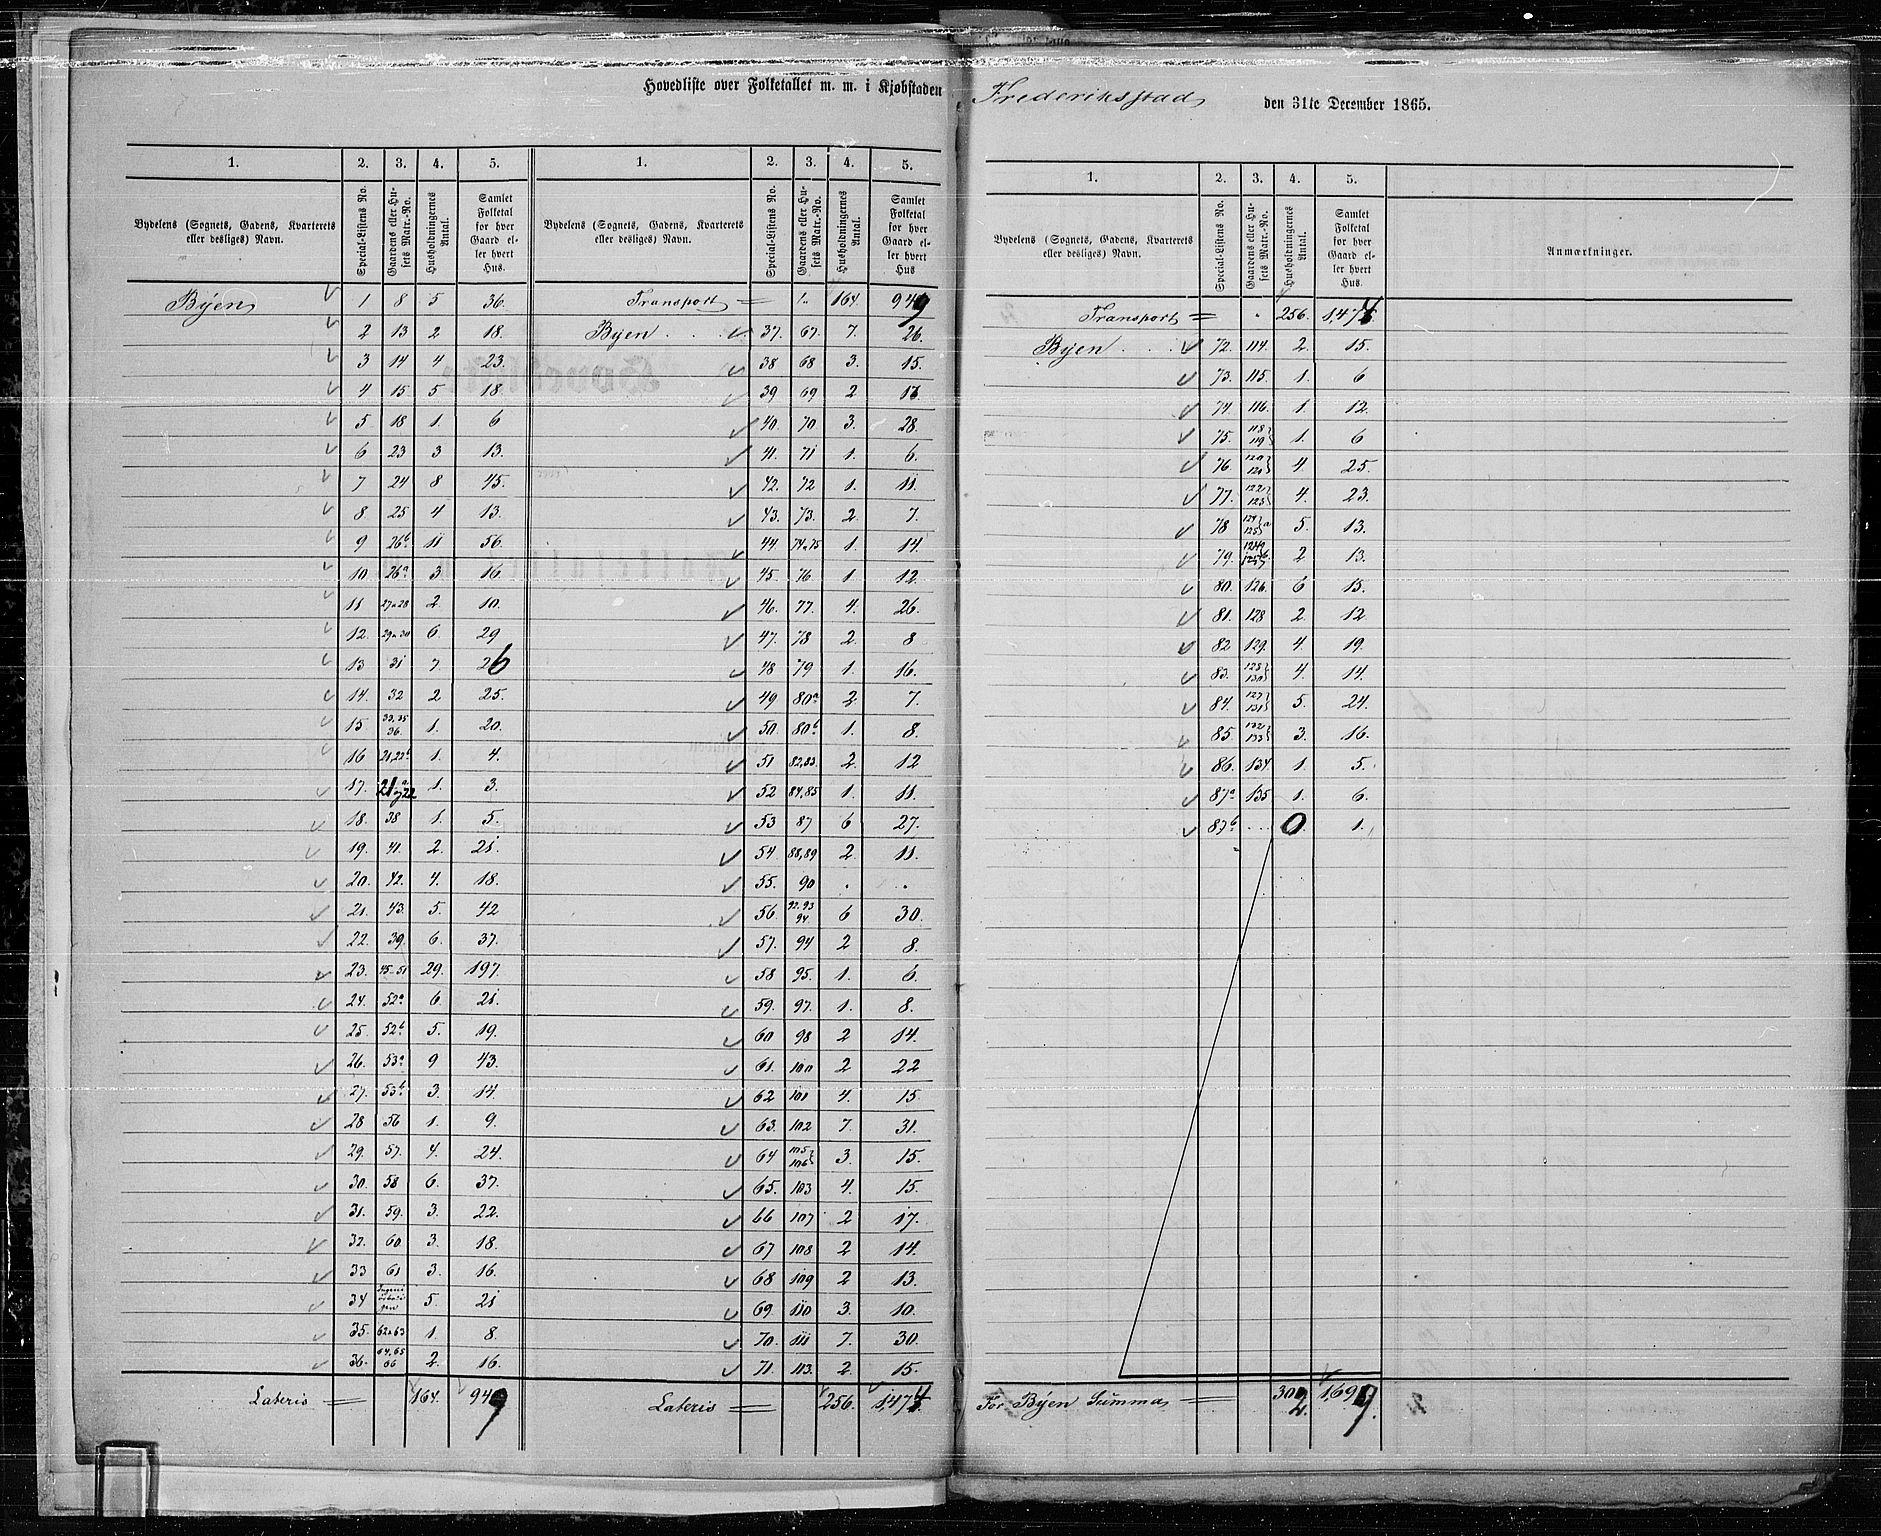 Hovedliste over Folketallet m. m. i Kjøbstaden Frederiksstad den 31te December 1865.
1. 2. 3. 4. 5. 1. 2. 3. 4. 5.
Bydelens (Sognets, Gadens, Kvarterets eller desliges) Navn. Special-Listens No. Gaardens eller Husets Matr.-No. Husholdningernes Antal. Samlet Folketal for hver Gaard eller hvert Hus. Bydelens (Sognets, Gadens, Kvarterets eller desliges) Navn. Special-Listens No. Gaardens eller Husets Matr.-No. Husholdningernes Antal. Samlet Folketal for hver Gaard eller hvert Hus
Byen 1 8 5 36.
2 13 2 18.
3 14 4 23.
4 15 5 18
5 18 1. 6
6 23 3 13.
7 24 8 45.
8. 25 4 13.
9 26b 11 56.
10 26a 3 16.
11 27 a 28 2. 10.
12. 29 a 30 6. 29
13 31 7. 26
14. 32 2 25.
15 33, 35 36. 1. 20.
16 21, 22b 1. 4.
17. 21a 22 1. 3.
18. 38 1. 5.
19. 41. 2. 21.
20. 42. 4. 18.
21. 43. 5. 42
22. 39. 6. 37.
23. 45-51 29. 197.
24. 52a 6. 21.
25. 52b 5. 19.
26. 53a 9 43.
27. 53b 3. 14.
28 56 1. 9.
29. 57. 4. 24.
30. 58 6. 37.
31. 59. 3. 22.
32. 60. 3. 18.
33 61 3. 16.
34 5. 21
35. 62 a 63 1. 8.
36. 64, 65 66 2. 16.
Lateris = 164. 949
Transport = 164. 949
Byen . . . 37. 67. 7. 26.
38 68 3. 15.
39 69 2 17.
40. 70 3. 28.
41. 71 1. 6.
42. 72 1. 11.
43. 73. 2. 7.
44. 74 a 75 1. 14.
45. 76 1. 12.
46. 77. 4. 26.
47. 78 2. 8
48 79 1. 16.
49 80a 2. 7.
50. 80b 1. 8.
51 82, 83. 2. 12
52 84, 85 1. 11.
53 87 6 27.
54. 88, 89 2. 11.
55. 90 . .
56. 92. 93 94. 6 30.
57. 94 2 8.
58 95. 1. 6.
59. 97. 1. 8.
60 98 2 14.
61. 100 2 22
62 101 4. 15.
63. 102 7. 31.
64 105 106 3. 15.
65. 103 4. 15.
66 107 2 17.
67 108 2 14.
68 109 2 13.
69. 110 3. 10.
70. 111 7. 30.
71. 113. 2. 15.
Lateris = 256. 1,474
1. 2. 3. 4. 5.
Bydelens (Sognets, Gadens, Kvarterets eller desliges) Navn. Special-Listens No. Gaardens eller Husets Matr.-No. Husholdningernes Antal. Samlet Folketal for hver Gaard eller hvert Hus. Anmærkninger.
Transport = 256. 1,474
Byen . . . 72. 114. 2. 15.
73. 115. 1. 6
74. 116. 1. 12.
75. 118 119 1. 6
76. 120 121 4. 25.
77. 122 123 4. 23.
78 124 125 a 5. 13.
79. 2 13.
80. 126. 6 15.
81. 128 2. 12
82 129. 4. 19.
83. 4. 14.
84. 127 131 5. 24.
85. 132 133 3. 16.
86. 134 1. 5.
87a 135 1. 6.
87b . . . 0. 1.
For Byen Summa = 302. 1,697.